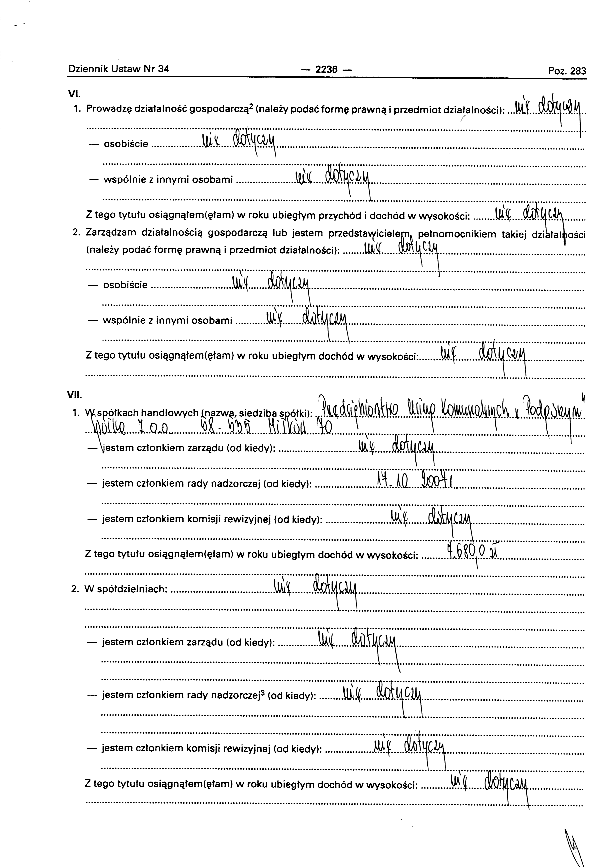 Dziennik Ustaw Nr 34 — 2236 — Poz. 283
VI.
1. Prowadzę działalność gospodarczą² (należy podać formę prawną i przedmiot działalności): nie dotyczy
— osobiście nie dotyczy
— wspólnie z innymi osobami nie dotyczy
Z tego tytułu osiągnąłem(ęłam) w roku ubiegłym przychód i dochód w wysokości: nie dotyczy
2. Zarządzam działalnością gospodarczą lub jestem przedstawicielem, pełnomocnikiem takiej działalności
(należy podać formę prawną i przedmiot działalności): nie dotyczy
— osobiście nie dotyczy
— wspólnie z innymi osobami nie dotyczy
Z tego tytułu osiągnąłem(ęłam) w roku ubiegłym dochód w wysokości: nie dotyczy
VII.
1. W spółkach handlowych (nazwa, siedziba spółki): Przedsiębiorstwo Usług Komunalnych
Spółka z o.o. 58-535 Miłków
— jestem członkiem zarządu (od kiedy): nie dotyczy
— jestem członkiem rady nadzorczej (od kiedy): 17.10 2007r
— jestem członkiem komisji rewizyjnej (od kiedy): nie dotyczy
Z tego tytułu osiągnąłem(ęłam) w roku ubiegłym dochód w wysokości: zł
2. W spółdzielniach: nie dotyczy
— jestem członkiem zarządu (od kiedy): nie dotyczy
— jestem członkiem rady nadzorczej³ (od kiedy): nie dotyczy
— jestem członkiem komisji rewizyjnej (od kiedy): nie dotyczy
Z tego tytułu osiągnąłem(ęłam) w roku ubiegłym dochód w wysokości: nie dotyczy